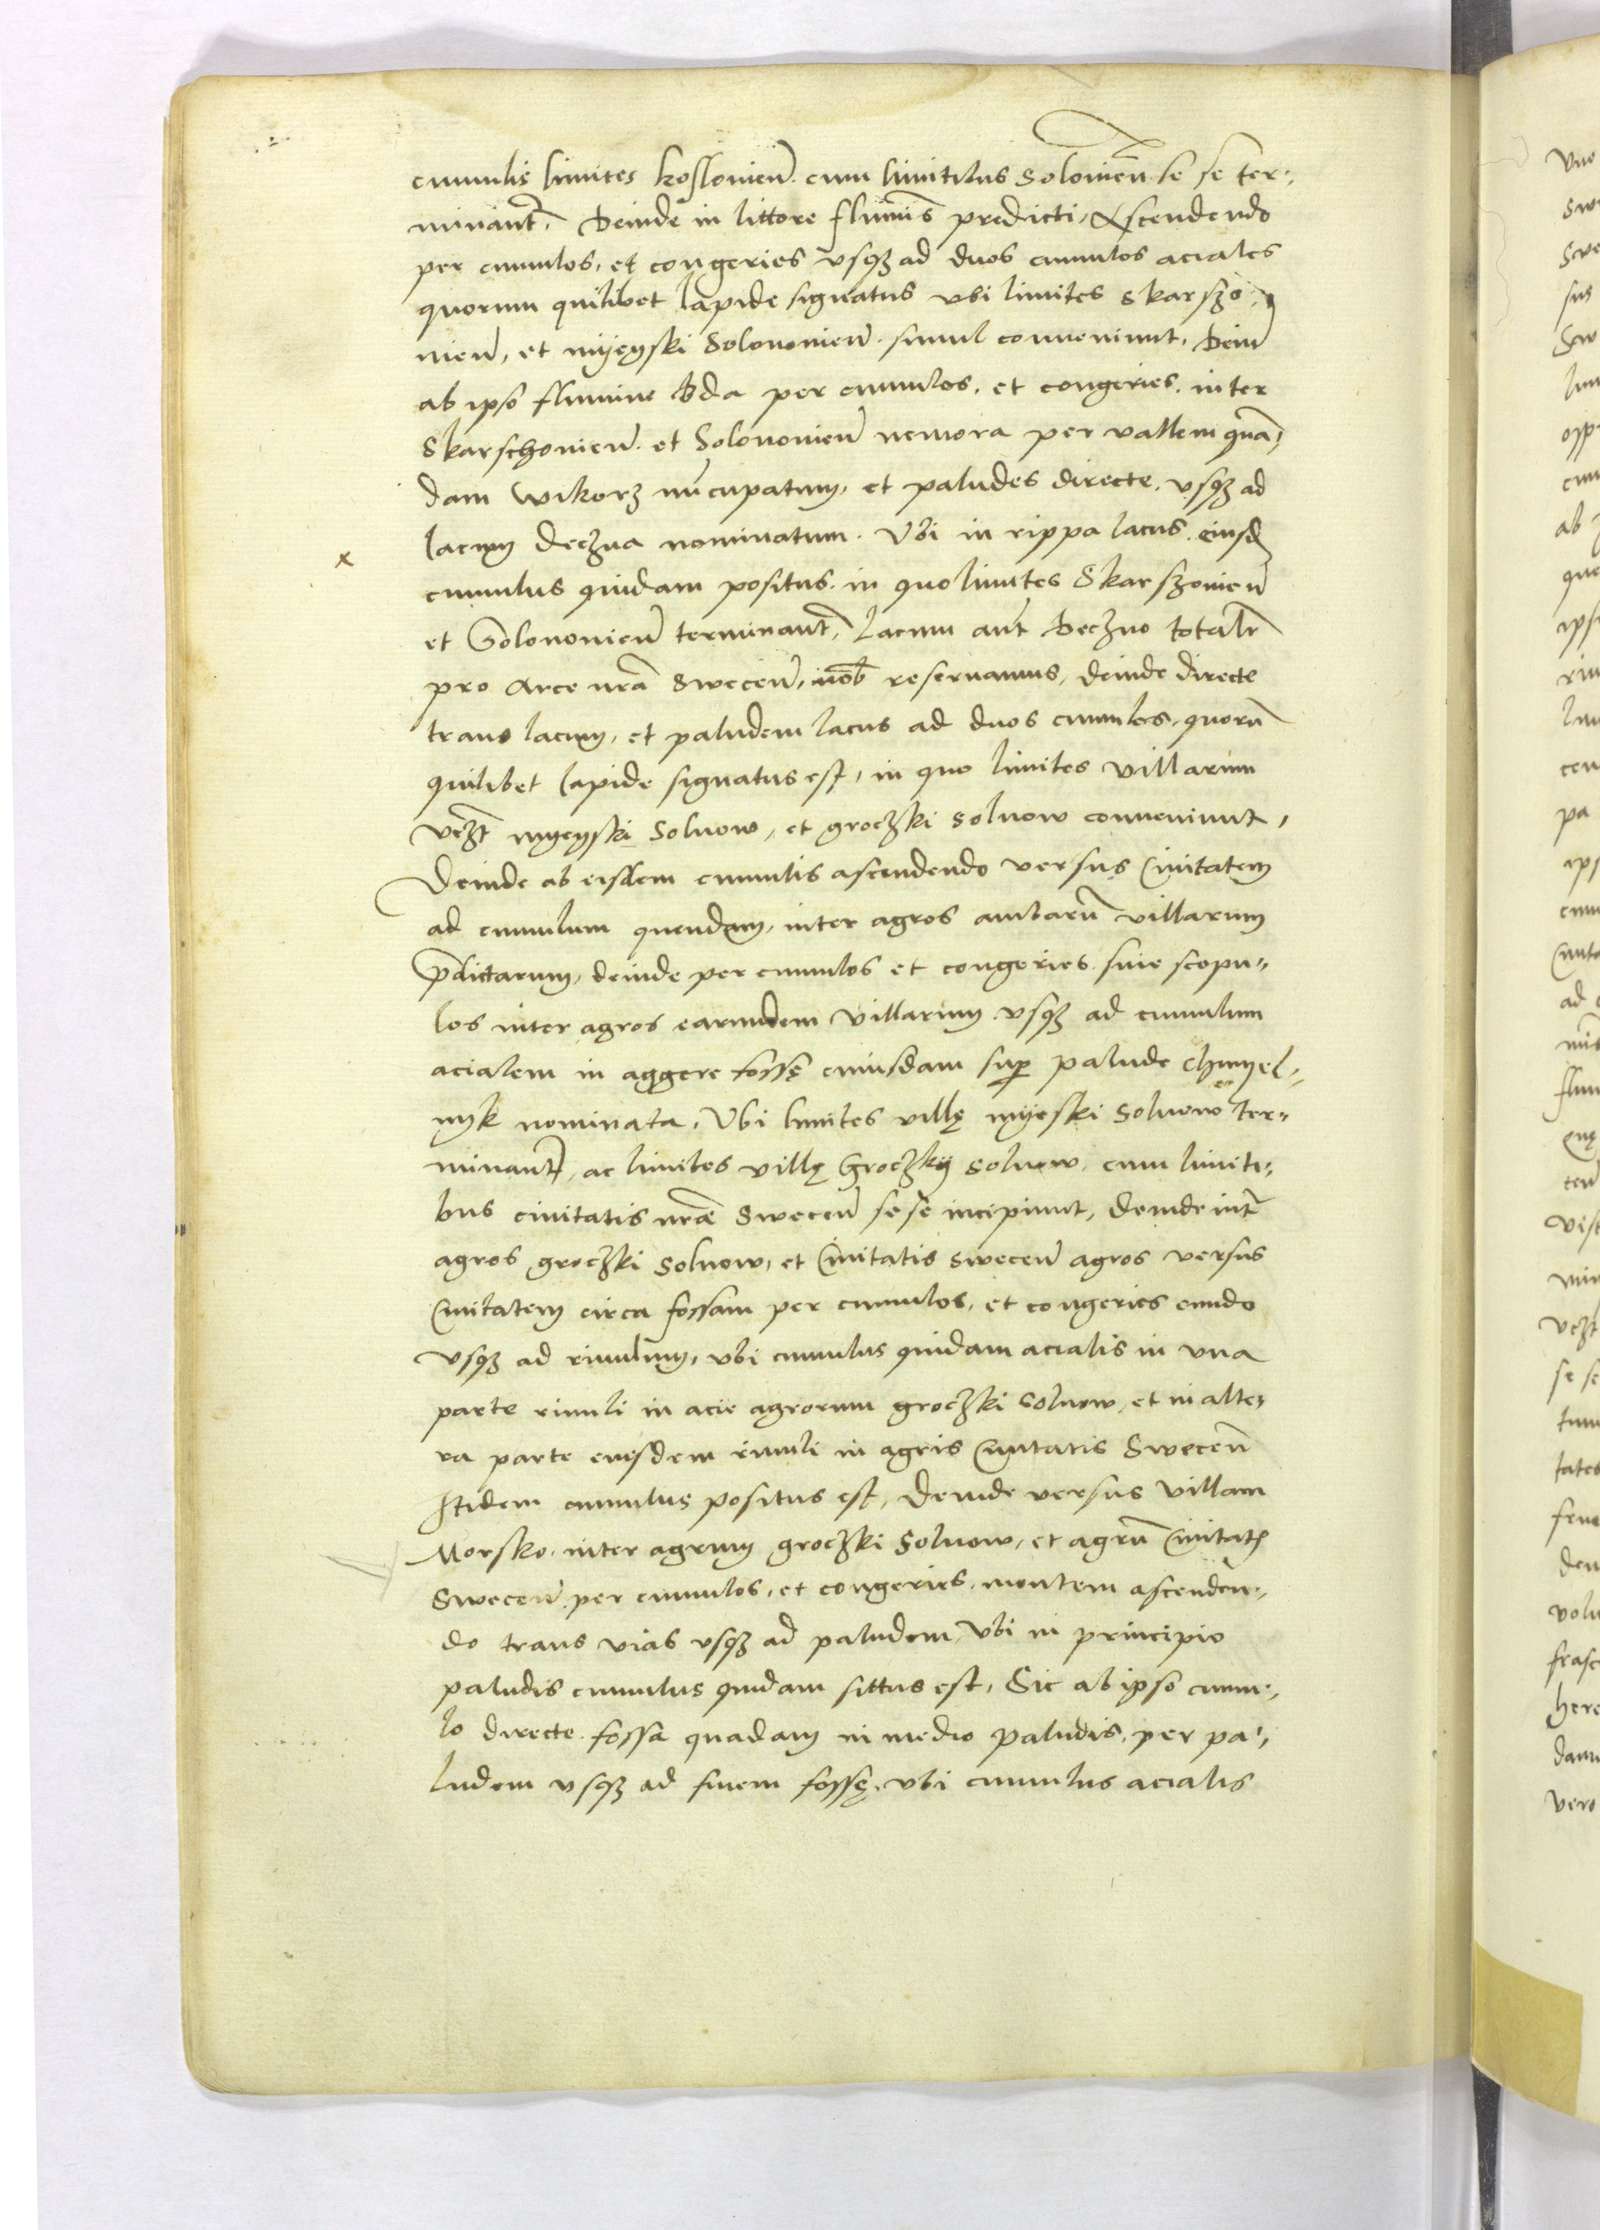 cumulis limites kosloviens̄. cum limitibus Soloviens̄ se se ter-
minant̄. Deinde in littore fluminis predicti, Ascendendo
per cumulos, et congeries vsqz ad duos cumulos aciales
quorum quilibet lapide signatus vbi limites Skarszo-
vien̄, et myeyski Solovovien̄. simul conveniunt. Dein̄
ab ipso flumine Bda per cumulos. et congeries. inter
Skarschovien̄. et Solovovien̄ nemora per vallem quā-
dam Wikorz nūcupatum, et paludes directe. vsqz ad
lacum Deczna nominatum. Vbi in rippa lacus. eiusd̄
cumulus quidam positus. in quo limites Skarszovien̄
et Solovovien̄ terminant̄, Lacum aut̄ Deczno totalr̄
pro Arce nrā Swecen̄, nob̄ reservamus, deinde directe
trans lacum, et paludem lacus ad duos cumulos, quorū
quilibet lapide signatus est, in quo limites villarum
vczt myeyski Solnow, et groczki solnow conveniunt,
Deinde ab eisdem cumulis ascendendo versus Civitatem
ad cumulum quendam, inter agros ambarū villarum
p̄dictarum, deinde per cumulos et congeries sive scopu-
los inter agros earundem villarum vsqz ad cumulum
acialem in aggere fossę cuiusdam sup̄ palude Chmyel-
nyk nominata, Vbi limites villę myeski Solnow ter-
minant̄, ac limites villę Groczkij solnow. cum limiti-
bus civitatis nrae Swecen̄ se se incipiunt, deinde int̄
agros groczki solnow, et Civitatis swecen̄ agros versus
Civitatem circa fossam per cumulos, et congeries eundo
vsqz ad rivulum, vbi cumulus quidam acialis in vna
parte rivuli in acie agrorum groczki solnow, et in alte-
ra parte eiusdem rivuli in agris Civitatis Swecen̄
Itidem cumulus positus est, Deinde versus villam
Morsko. inter agrum groczki Solnow, et agrū Civitatis
Swecen̄ per cumulos, et congeries. montem ascenden-
do trans vias vsqz ad paludem, Vbi in principio
paludis cumulus quidam sittus est, Sic ab ipso cumu-
lo directe. fossa quadam in medio paludis, per pa-
ludem vsqz ad finem fossę, vbi cumulus acialis